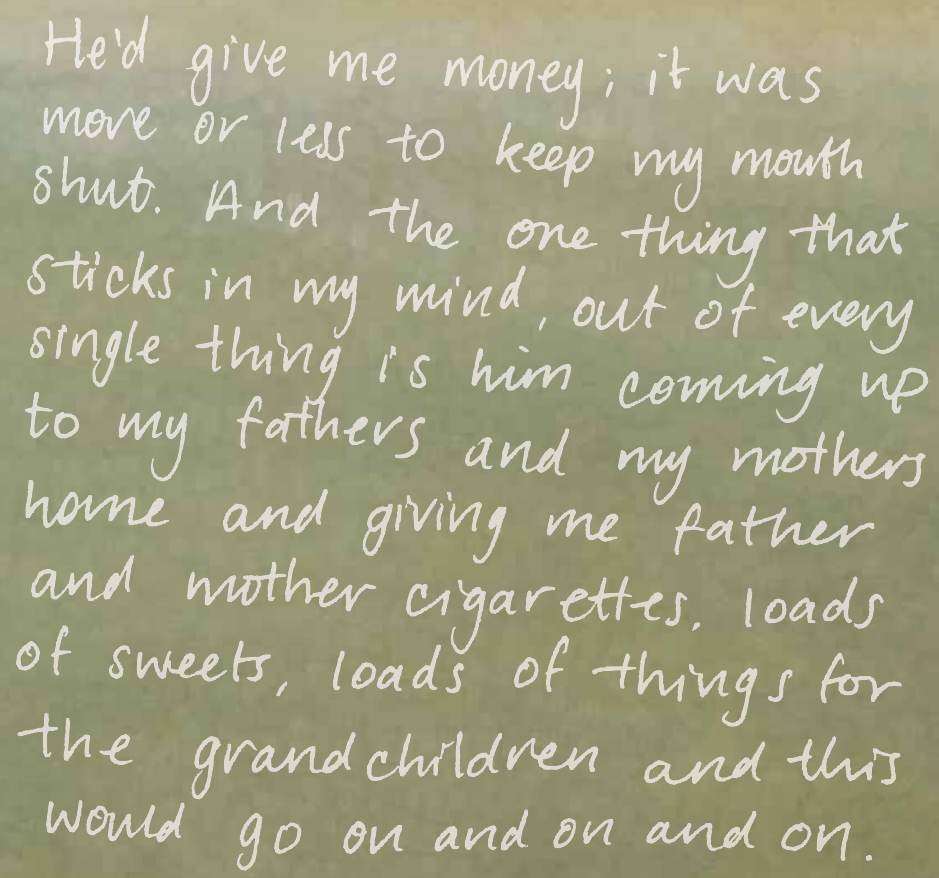 He'd give me money; it was
more or less to keep my mouth
shut. And the one thing that
sticks in my mind, out of every
single thing is him coming up
to my fathers and my mothers
home and giving me father
and mother cigarettes, loads
of sweets, loads of things for
the grandchildren and this
would go on and on and on.